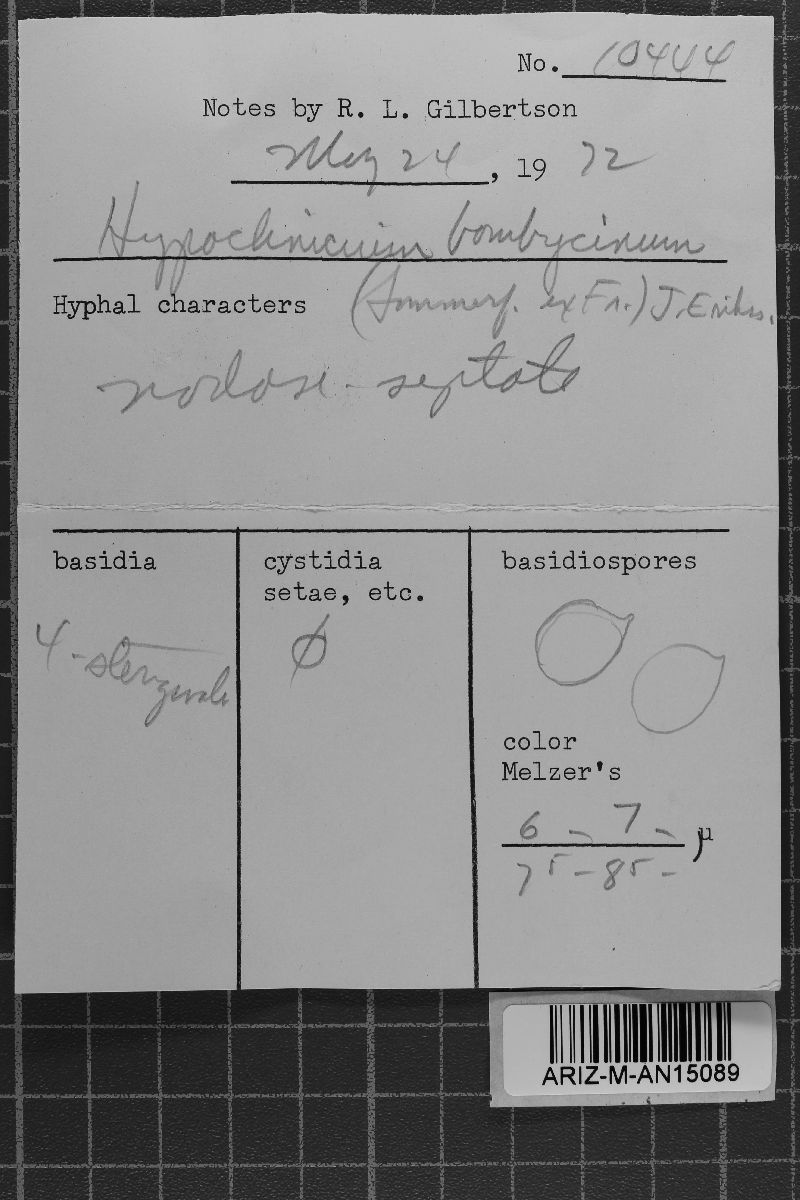 No. 10444
Notes by R. L. Gilbertson
May 24, 19 72
Hypochnicium bombycinum
Hyphal characters (Sommerf. ex Fr.) J. Erikss.
nodose-septate
basidia
4-sterigmate
cystidia
setae, etc.
Ø
basidiospores
color
Melzer's
6 - 7 - µ
75 - 85 -
ARIZ-M-AN15089